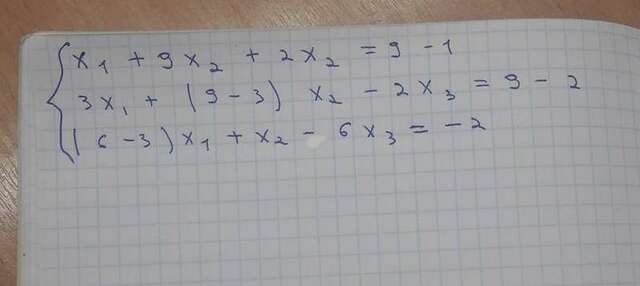 x₁ + 9x₂ + 2x₂ = 9 - 1
3x₁ + (9 - 3) x₂ - 2x₃ = 9 - 2
(6 - 3)x₁ + x₂ - 6x₃ = -2